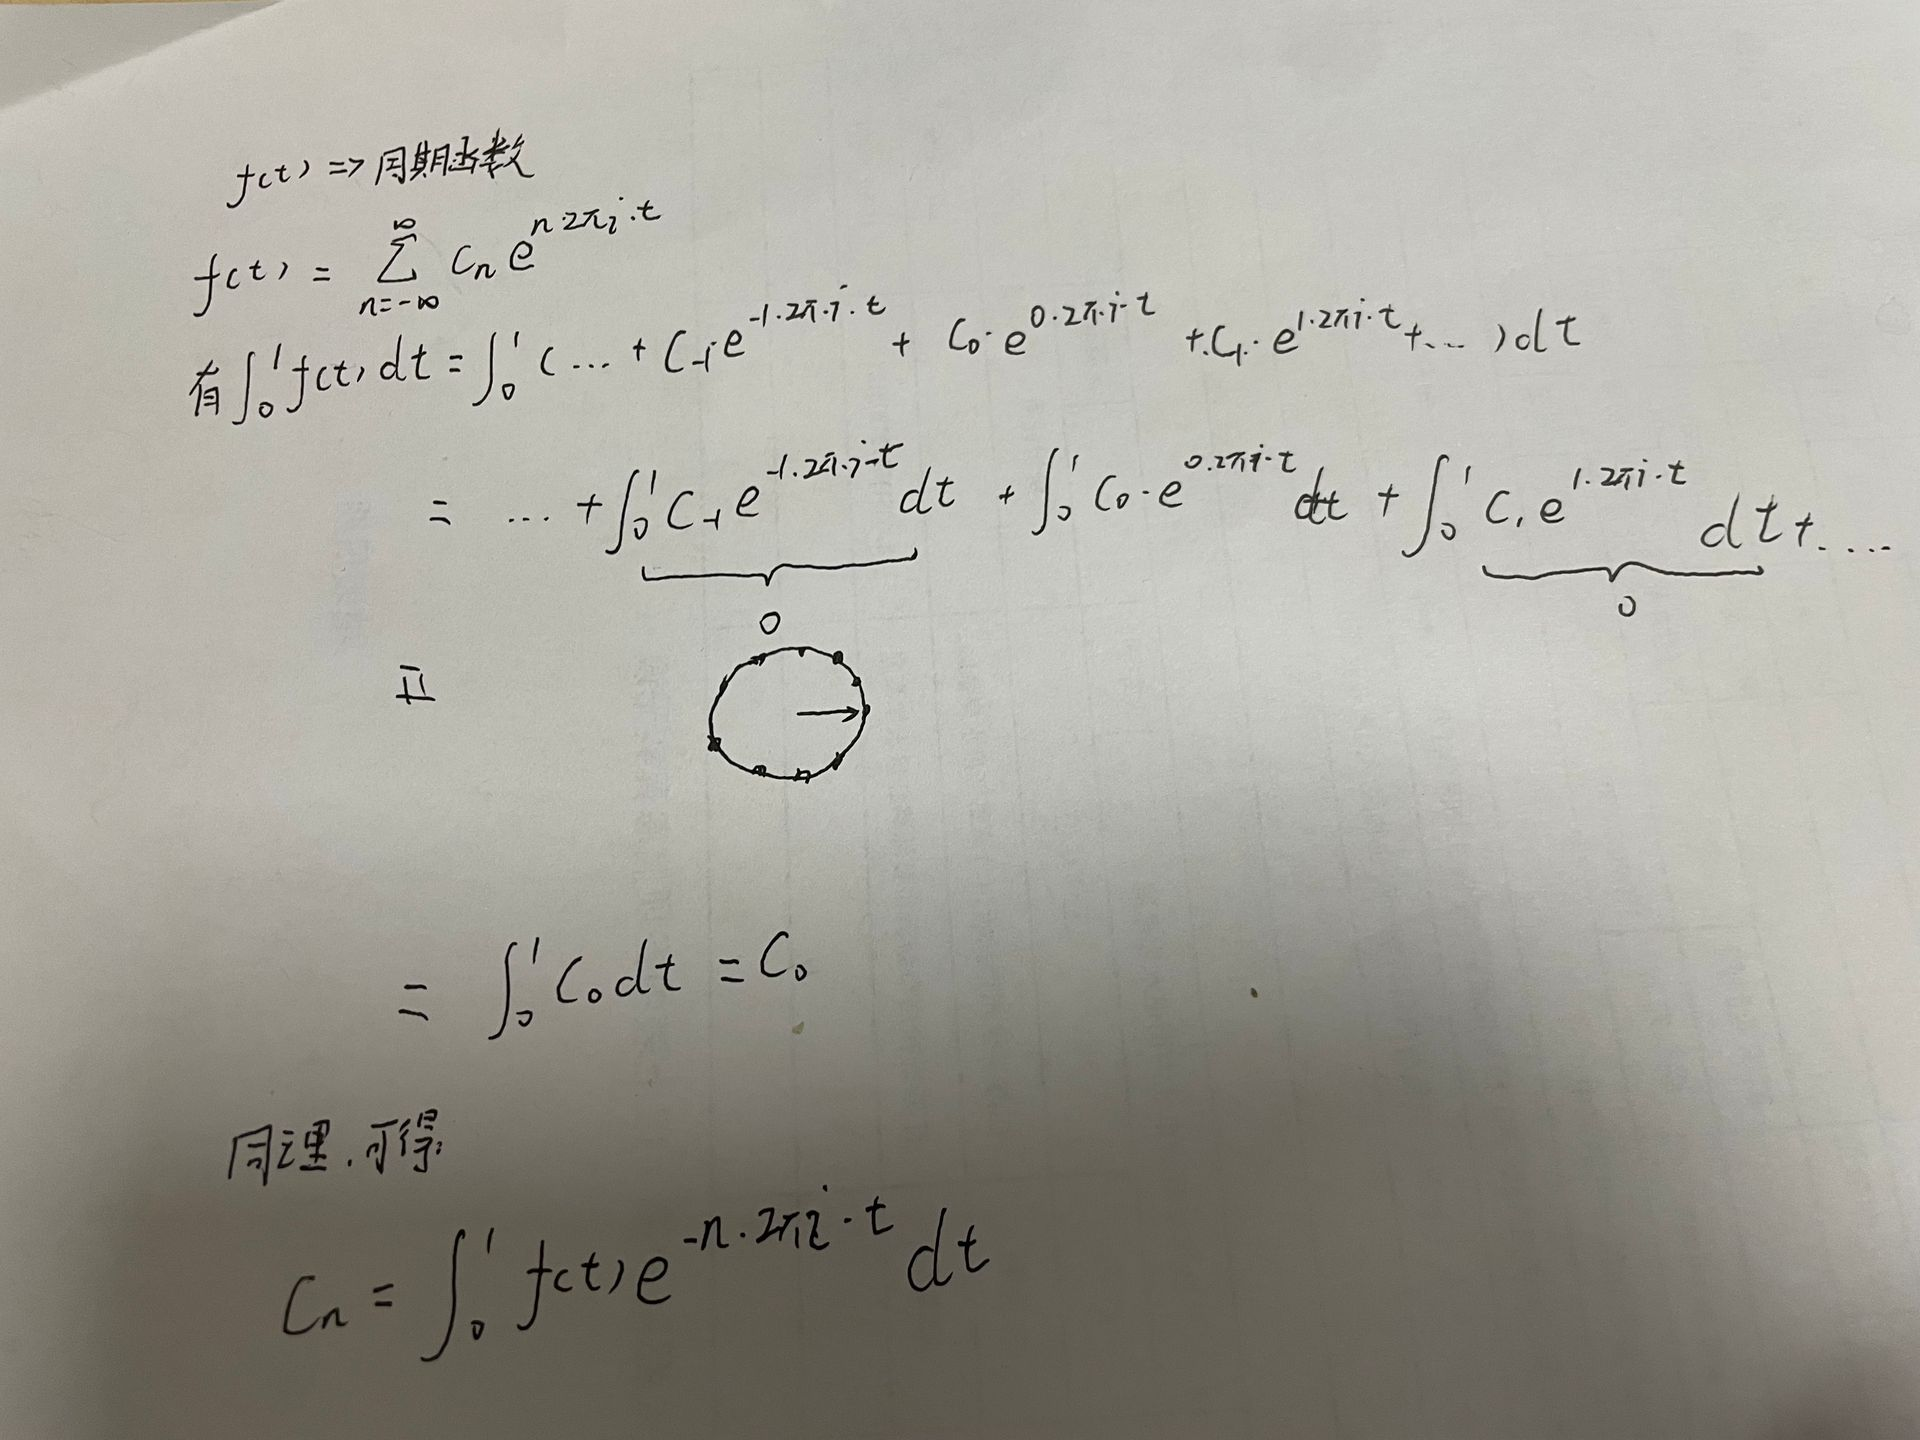 f(t) => 周期函数
f(t) = ∑_{n=-∞}^{∞} C_n e^{n·2πi·t}
有 ∫_0^1 f(t) dt = ∫_0^1 (... + C_{-1} e^{-1·2π·i·t} + C_0·e^{0·2π·i·t} + C_1·e^{1·2πi·t} + ...) dt
= ... + ∫_0^1 C_{-1} e^{-1·2π·i·t} dt + ∫_0^1 C_0·e^{0·2πi·t} dt + ∫_0^1 C_1 e^{1·2πi·t} dt + ....
0 0
= ∫_0^1 C_0 dt = C_0
同理.可得:
C_n = ∫_0^1 f(t) e^{-n·2πi·t} dt